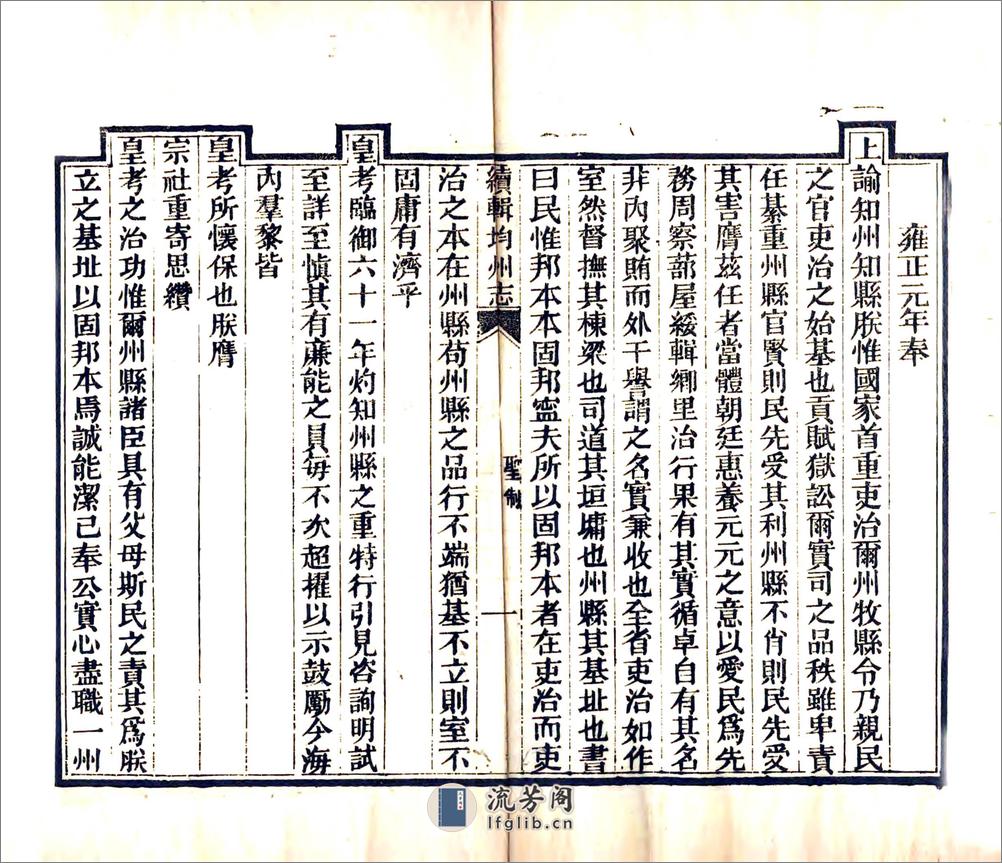 雍正元年奉
上諭知州知縣朕惟國家首重吏治爾州牧縣令乃親民
之官吏治之始基也貢賦獄訟爾實司之品秩雖卑責
任綦重州縣官賢則民先受其利州縣不肖則民先受
其害膺茲任者當體朝廷惠養元元之意以愛民爲先
務周察蔀屋緩輯鄉里治行果有其實循卓自有其名
非內聚賄而外干譽謂之名實兼收也全省吏治如作
室然督撫其棟梁也司道其垣墉也州縣其基址也書
曰民惟邦本本固邦寍夫所以固邦本者在吏治而吏
續輯均州志
聖制
一
治之本在州縣苟州縣之品行不端猶基不立則室不
固庸有濟乎
皇考臨御六十一年灼知州縣之重特行引見咨詢明試
至詳至慎其有廉能之員每不次超擢以示鼓勵今海
內羣黎皆
皇考所懷保也朕膺
宗社重寄思纘
皇考之治功惟爾州縣諸臣具有父母斯民之責其爲朕
立之基址以固邦本焉誠能潔己奉公實心盡職一州
流芳阁
lfglib.cn